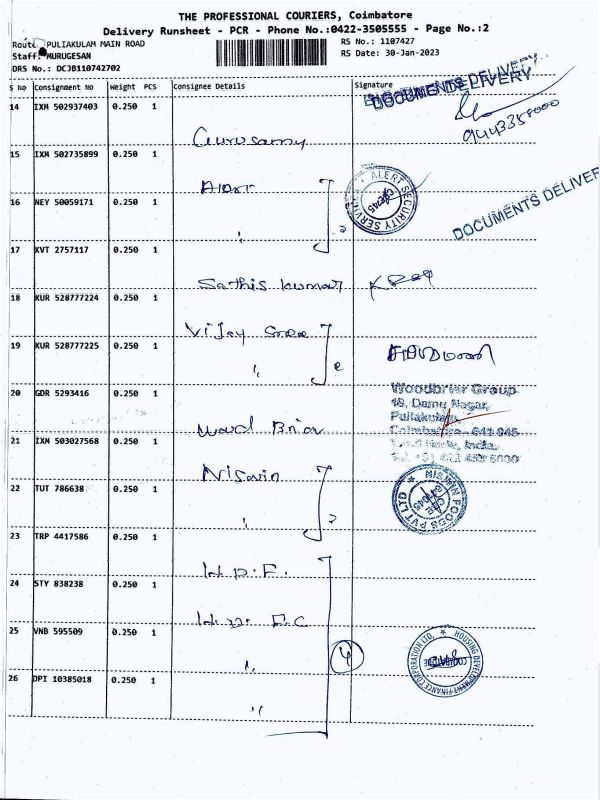 THE PROFESSIONAL COURIERS, Coimbatore
Delivery Runsheet - PCR - Phone No.:0422-3505555 - Page No.:2
Route: PULIAKULAM MAIN ROAD
RS No.: 1107427
Staff: MURUGESAN
RS Date: 30-Jan-2023
DRS No.: DCJB110742702
S No Consignment No Weight PCS Consignee Details Signature
DOCUMENTS DELIVERY
14 IXM 502937403 0.250 1
9443358000
Gurusamy
15 IXM 502735899 0.250 1
Alert
ALERT SECURITY SERVICE
CBE-45
16 NEY 50059171 0.250 1
" 2
DOCUMENTS DELIVER
17 KVT 2757117 0.250 1
Sathis kumar
18 KUR 528777224 0.250 1
Vijay
19 KUR 528777225 0.250 1
"
20 GDR 5293416 0.250 1
Woodbriar Group
18, Damu Nagar,
Puliakulam,
Coimbatore - 641 045
Tamil Nadu, India.
Wood Briar
21 IXM 503027568 0.250 1
Nisarin
22 TUT 786638 0.250 1
" 2
FOODS PVT LTD
23 TRP 4417586 0.250 1
H.D.F.
24 STY 838238 0.250 1
H.D.F.C
25 VNB 595509 0.250 1
" 4
HOUSING DEVELOPMENT FINANCE CORPORATION LTD.
COIMBATORE
26 DPI 10385018 0.250 1
"